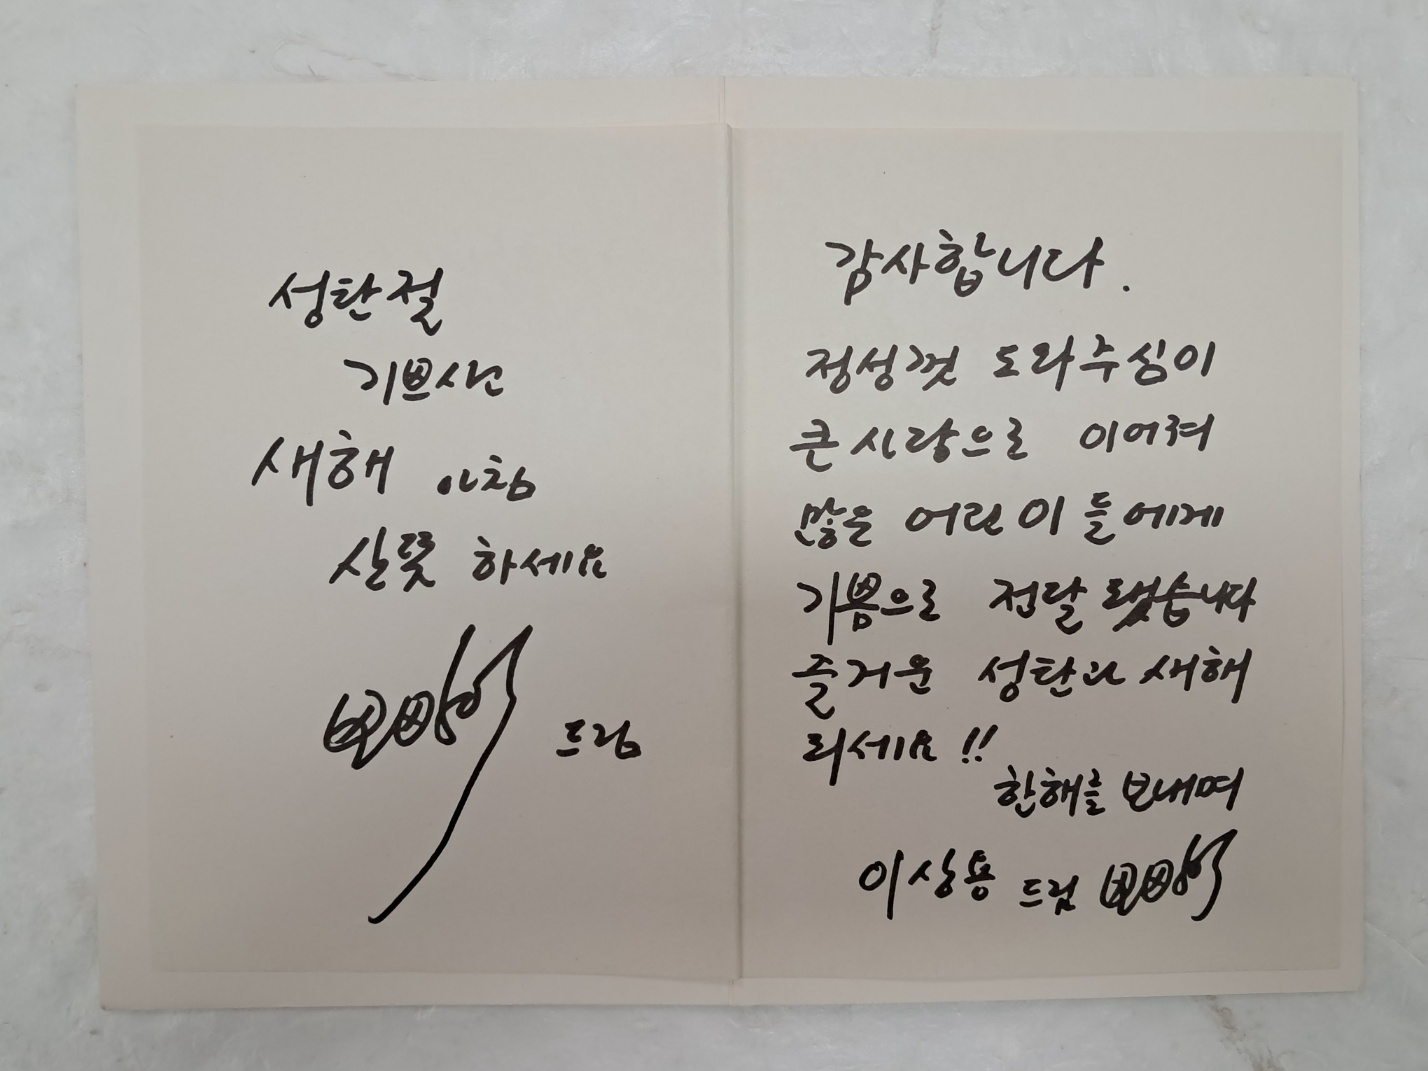 성탄절
기쁘시고
새해 아침
산뜻 하세요
드림
감사합니다.
정성껏 도와주심이
큰 사랑으로 이어져
많은 어린이들에게
기쁨으로 전달 됐습니다
즐거운 성탄과 새해
되세요!!
한해를 보내며
이상용 드림